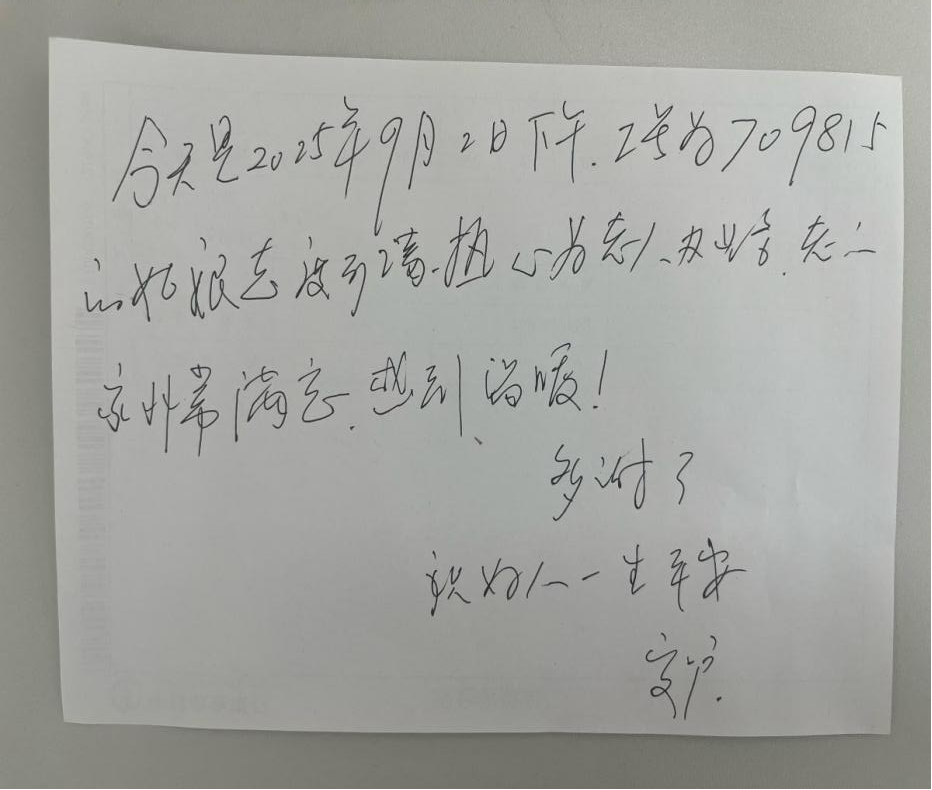 今天是2025年9月2日下午.工号为709815
的姑娘态度可嘉.热心为老人办业务.老人
家非常满意.感到温暖!
多谢了
祝好人一生平安
客户.